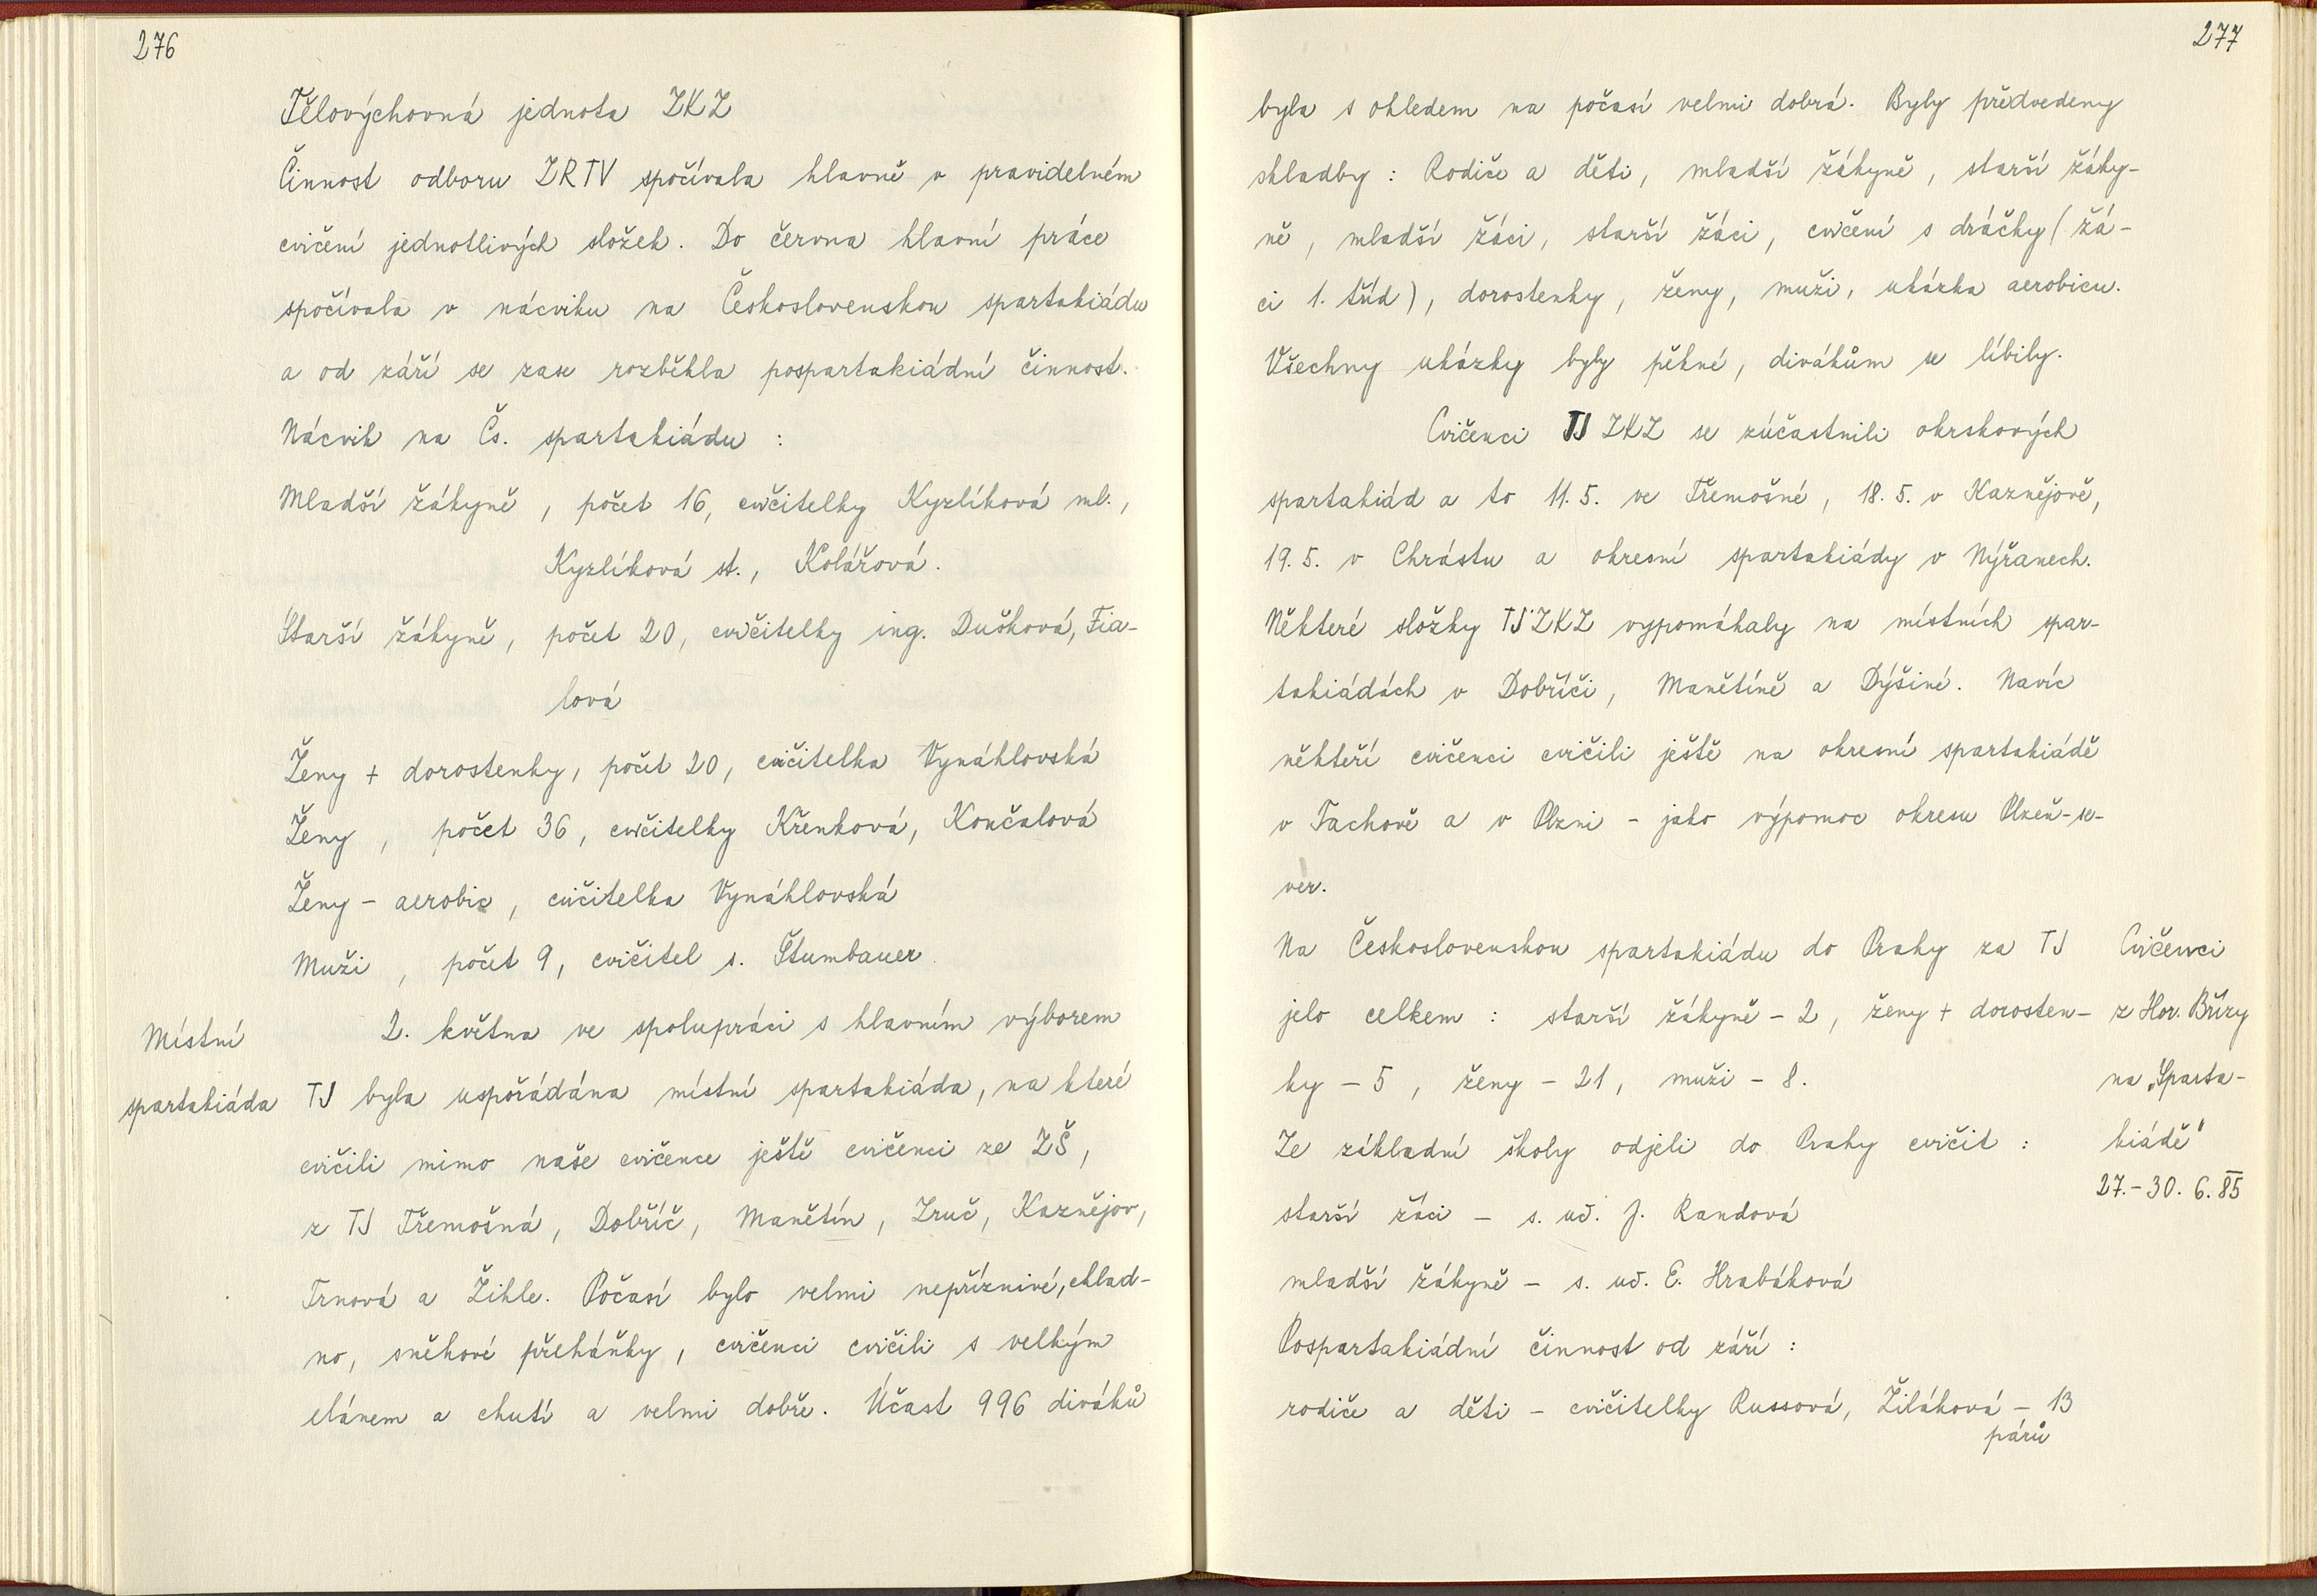 276
Tělovýchovná jednota ZKZ
Činnost odboru ZRTV spočívala hlavně v pravidelném
cvičení jednotlivých složek. Do června hlavní práce
spočívala v nácviku na Československou spartakiádu
a od září se zase rozběhla pospartakiádní činnost.
Nácvik na Čs. spartakiádu :
Mladší žákyně , počet 16, cvičitelky Kyzlíková ml.,
Kyzlíková st., Kolářová.
Starší žákyně, počet 20, cvičitelky ing. Dušková, Fia-
lová
Ženy + dorostenky, počet 20, cvičitelka Vynáhlovská
Ženy , počet 36, cvičitelky Křenková, Končalová
Ženy - aerobic, cvičitelka Vynáhlovská
Muži , počet 9, cvičitel s. Štumbauer.
Místní
spartakiáda
2. května ve spolupráci s hlavním výborem
TJ byla uspořádána místní spartakiáda, na které
cvičili mimo naše cvičence ještě cvičenci ze ZŠ,
z TJ Třemošná, Dobříč, Manětín, Zruč, Kaznějov,
Trnová a Žihle. Počasí bylo velmi nepříznivé, chlad-
no, sněhové přeháňky, cvičenci cvičili s velkým
elánem a chutí a velmi dobře. Účast 996 diváků
277
byla s ohledem na počasí velmi dobrá. Byly předvedeny
skladby : Rodiče a děti, mladší žákyně, starší žáky-
ně, mladší žáci, starší žáci, cvičení s dráčky (žá-
ci 1. tříd), dorostenky, ženy, muži, ukázka aerobicu.
Všechny ukázky byly pěkné, divákům se líbily.
Cvičenci TJ ZKZ se zúčastnili okrskových
spartakiád a to 11. 5. ve Třemošné, 18. 5. v Kaznějově,
19. 5. v Chrástu a okresní spartakiády v Nýřanech.
Některé složky TJ ZKZ vypomáhaly na místních spar-
takiádách v Dobříči, Manětíně a Dýšiné. Navíc
někteří cvičenci cvičili ještě na okresní spartakiádě
v Tachově a v Plzni - jako výpomoc okresu Plzeň-se-
ver.
Na Československou spartakiádu do Prahy za TJ
jelo celkem : starší žákyně - 2, ženy + dorosten-
ky - 5 , ženy - 21, muži - 8.
Ze základní školy odjeli do Prahy cvičit :
starší žáci - s. uč. J. Randová
mladší žákyně - s. uč. E. Hrabáková
Pospartakiádní činnost od září :
rodiče a děti - cvičitelky Russová, Žiláková - 13
párů
Cvičenci
z Hor. Břízy
na „Sparta-
kiádě"
27.-30. 6. 85